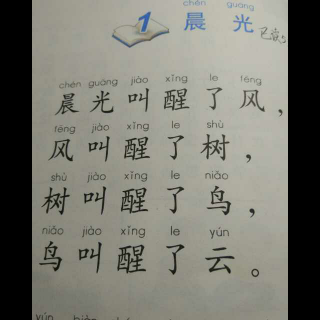 chén guāng
1 晨光
chén guāng jiào xǐng le fēng
晨光叫醒了风，
fēng jiào xǐng le shù
风叫醒了树，
shù jiào xǐng le niǎo
树叫醒了鸟，
niǎo jiào xǐng le yún
鸟叫醒了云。
yún